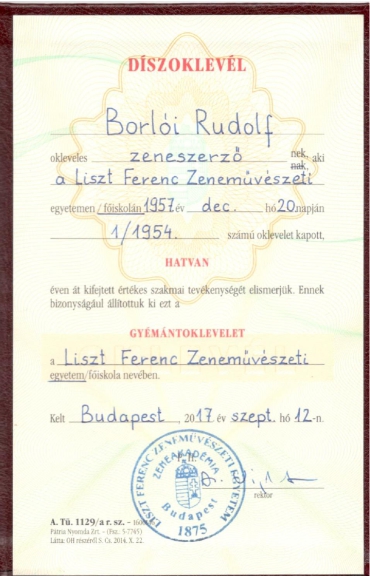 DÍSZOKLEVÉL
Borlói Rudolf
okleveles zeneszerző nek, nak, aki
a Liszt Ferenc Zeneművészeti
egyetemen / főiskolán 1957 év dec. hó 20 napján
1/1954. számú oklevelet kapott,
HATVAN
éven át kifejtett értékes szakmai tevékenységét elismerjük. Ennek
bizonyságául állítottuk ki ezt a
GYÉMÁNTOKLEVELET
a Liszt Ferenc Zeneművészeti
egyetem/főiskola nevében.
Kelt Budapest, 2017 év szept. hó 12-n.
LISZT FERENC ZENEMŰVÉSZETI EGYETEM
ZENEAKADÉMIA
Budapest
1875
rektor
A. Tü. 1129/a r. sz. –
Pátria Nyomda Zrt. – (Fax: 5-7765)
Látta: OH részéről S. Cs. 2014. X. 22.